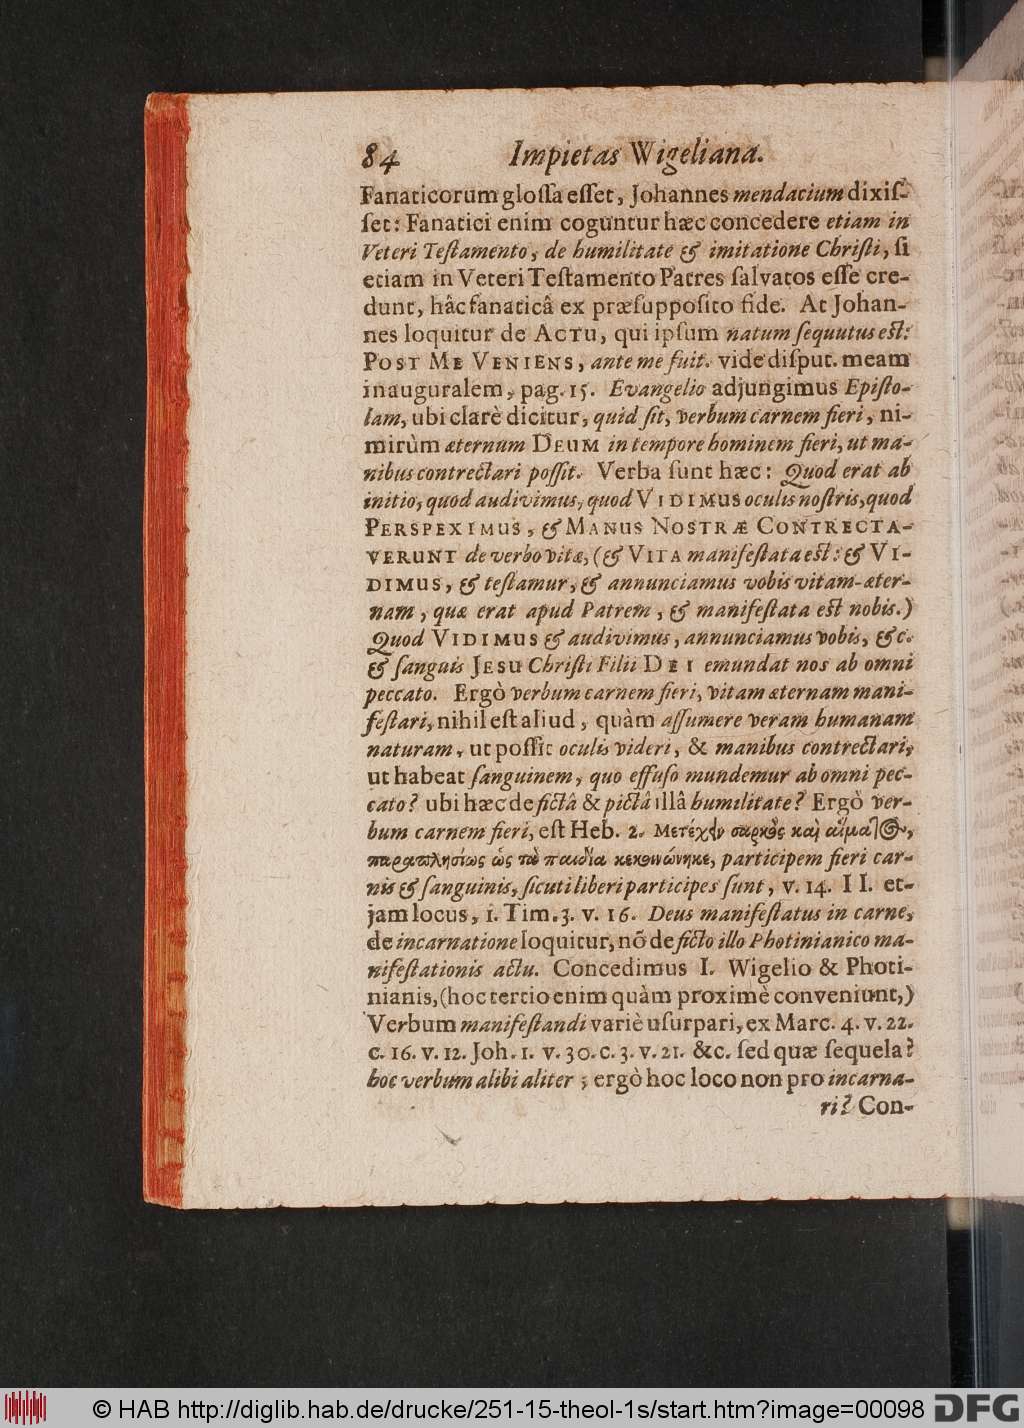 84 Impietas Wigeliana.
Fanaticorum glossa esset, Johannes mendacium dixis-
set: Fanatici enim coguntur hæc concedere etiam in
Veteri Testamento, de humilitate & imitatione Christi, si
etiam in Veteri Testamento Patres salvatos esse cre-
dunt, hâc fanaticâ ex præsupposito fide. At Johan-
nes loquitur de ACTU, qui ipsum natum sequutus est:
POST ME VENIENS, ante me fuit. vide disput. meam
inauguralem, pag. 15. Evangelio adjungimus Episto-
lam, ubi clarè dicitur, quid sit, verbum carnem fieri, ni-
mirùm æternum DEUM in tempore hominem fieri, ut ma-
nibus contrectari possit. Verba sunt hæc: Quod erat ab
initio, quod audivimus, quod VIDIMUS oculis nostris, quod
PERSPEXIMUS, & MANUS NOSTRÆ CONTRECTA-
VERUNT de verbo vitæ, (& VITA manifestata est: & VI-
DIMUS, & testamur, & annunciamus vobis vitam æter-
nam, quæ erat apud Patrem, & manifestata est nobis.)
Quod VIDIMUS & audivimus, annunciamus vobis, &c.
& sanguis JESU Christi Filii DEI emundat nos ab omni
peccato. Ergò verbum carnem fieri, vitam æternam mani-
festari, nihil est aliud, quàm assumere veram humanam
naturam, ut possit oculis videri, & manibus contrectari,
ut habeat sanguinem, quo effuso mundemur ab omni pec-
cato? ubi hæc de fictâ & pictâ illâ humilitate? Ergò ver-
bum carnem fieri, est Heb. 2. Μετέχειν σαρκὸς καὶ αἵματος,
παραπλησίως ὡς τὰ παιδία κεκοινώνηκε, participem fieri car-
nis & sanguinis, sicuti liberi participes sunt, v. 14. II. et-
jam locus, 1. Tim. 3. v. 16. Deus manifestatus in carne,
de incarnatione loquitur, nõ de ficto illo Photinianico ma-
nifestationis actu. Concedimus I. Wigelio & Photi-
nianis, (hoc tertio enim quàm proximè conveniunt,)
Verbum manifestandi variè usurpari, ex Marc. 4. v. 22.
c. 16. v. 12. Joh. 1. v. 30. c. 3. v. 21. &c. sed quæ sequela?
hoc verbum alibi aliter; ergò hoc loco non pro incarna-
ri? Con-
© HAB http://diglib.hab.de/drucke/251-15-theol-1s/start.htm?image=00098 DFG